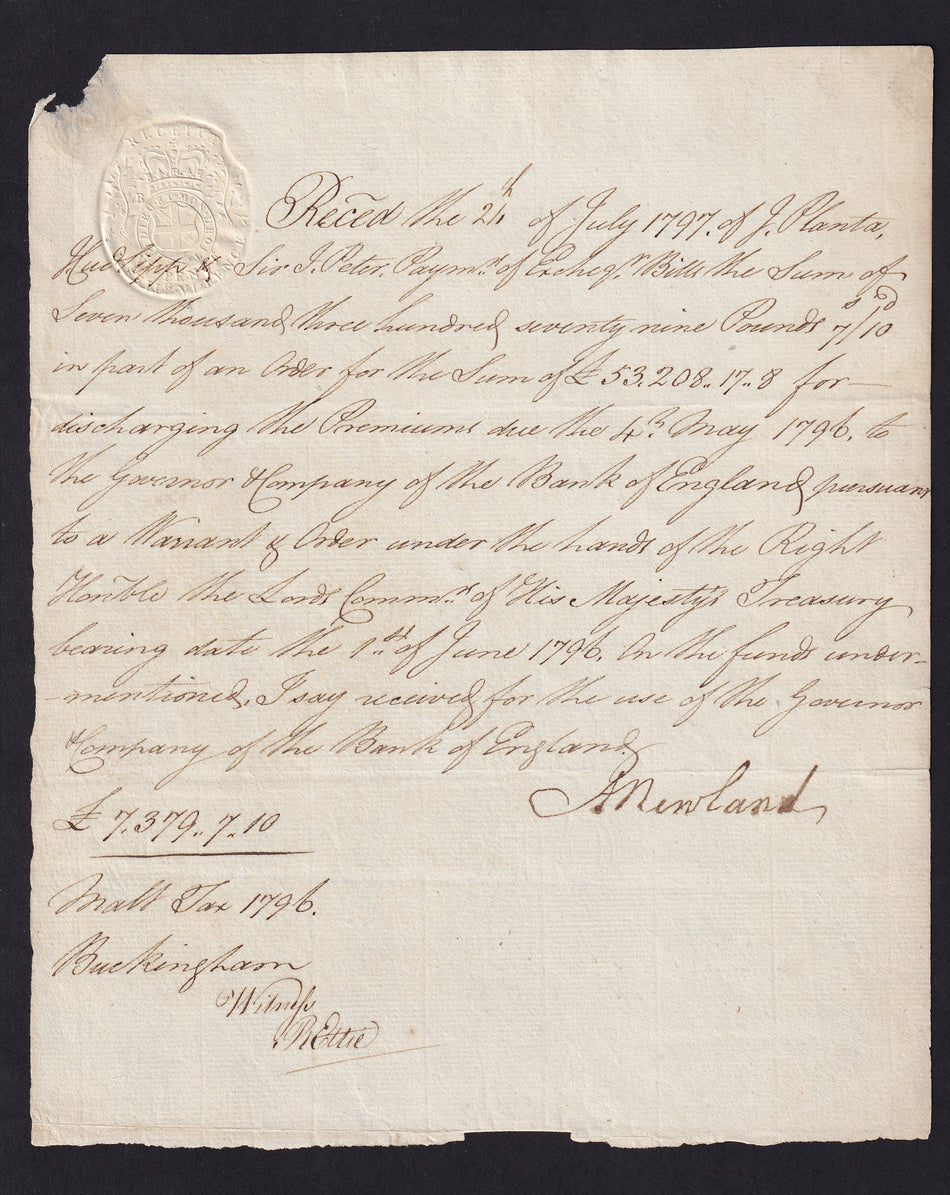 RECEIPT
Reced the 24th of July 1797. of J. Planta,
Hue Sipp & Sir J. Peter. Paymrs. of Excheqr. Bills the Sum of
Seven thousand three hundred seventy nine Pounds 7s/10d
in part of an Order for the Sum of £ 53.208..17..8 for
discharging the Premiums due the 4th May 1796. to
the Governor & Company of the Bank of England pursuant
to a Warrant & Order under the hands of the Right
Honble the Lords Commrs. of His Majesty's Treasury
bearing date the 1st of June 1796. On the funds under-
-mentioned. I say received for the use of the Governor
& Company of the Bank of England
A Newland
£ 7.379..7..10
Malt Tax 1796.
Buckingham
Witness